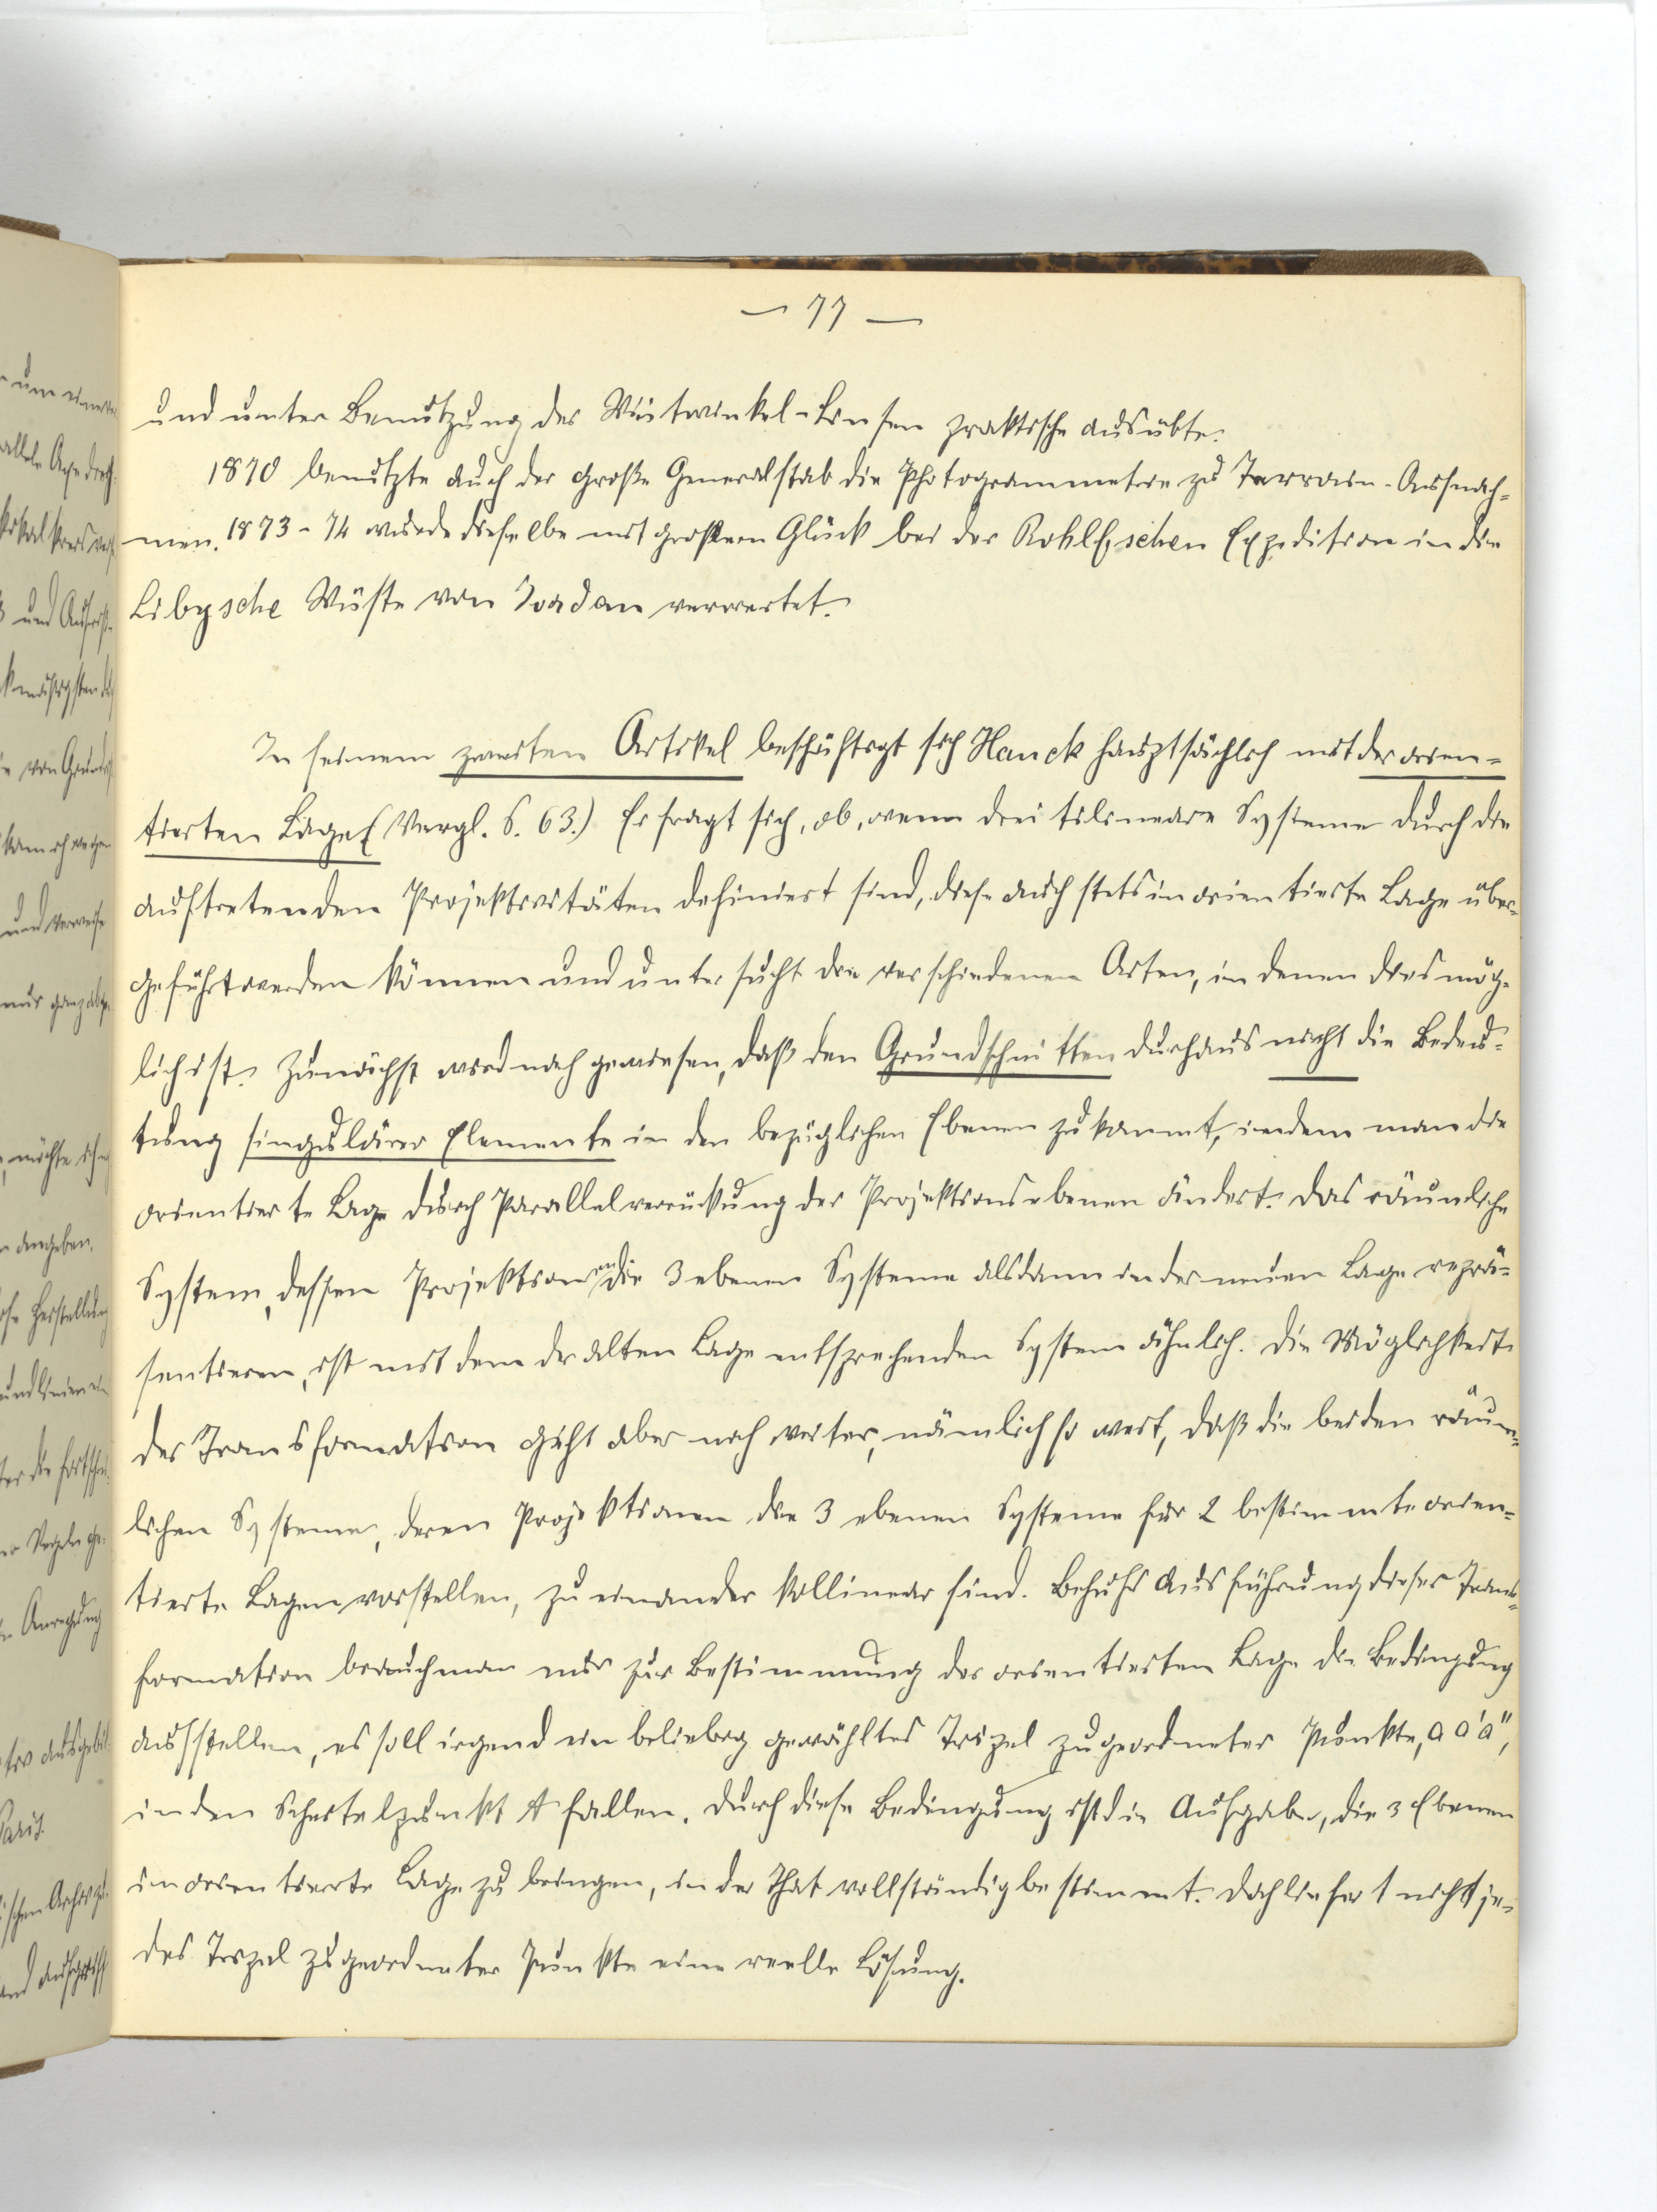 — 77 —
und unter Benutzung der Weitwinkel-Linsen praktische ausübte.
1870 benutzte auch der große Generalstab die Photogrammetrie zu Terrain-Aufnah-
men. 1873-74 wurde dieselbe mit großem Glück bei der Rohlfsschen Expedition in die
Libysche Wüste von Jordan verwertet.
In seinem zweiten Artikel beschäftigt sich Hauck hauptsächlich mit der orien-
tierten Lage (Vergl. S. 63.) Er fragt sich, ob, wenn drei trilineare Systeme durch die
auftretenden Projektivitäten definiert sind, diese auch stets in orientierte Lage über-
geführt werden können und untersucht die verschiedenen Arten, in denen dies mög-
lich ist. Zunächst wird nachgewiesen, daß den Grundschnitten durchaus nicht die Bedeu-
tung singulärer Elemente in den bezüglichen Ebenen zukommt, indem man die
orientierte Lage durch Parallelverrückung der Projektionsebenen ändert. Das räumliche
System, dessen Projektionen die 3 ebenen Systeme alsdann in der neuen Lage reprä-
sentieren, ist mit dem der alten Lage entsprechenden System ähnlich. Die Möglichkeit
der Transformation geht aber noch weiter, nämlich so weit, daß die beiden räum-
lichen Systeme, deren Projektionen die 3 ebenen Systeme für 2 bestimmte orien-
tierte Lagen vorstellen, zu einander kollinear sind. Behufs Ausführung dieser Trans-
formation brauch man nur zur Bestimmung der orientierten Lage die Bedingung
aufstellen, es soll irgend ein beliebig gewähltes Tripel zugeordneter Punkte, a a' a'',
in den Scheitelpunkt A fallen. Durch diese Bedingung ist die Aufgabe, die 3 Ebenen
in orientierte Lage zu bringen, in der That vollständig bestimmt. Doch liefert nicht je-
des Tripel zugeordneter Punkte eine reelle Lösung.